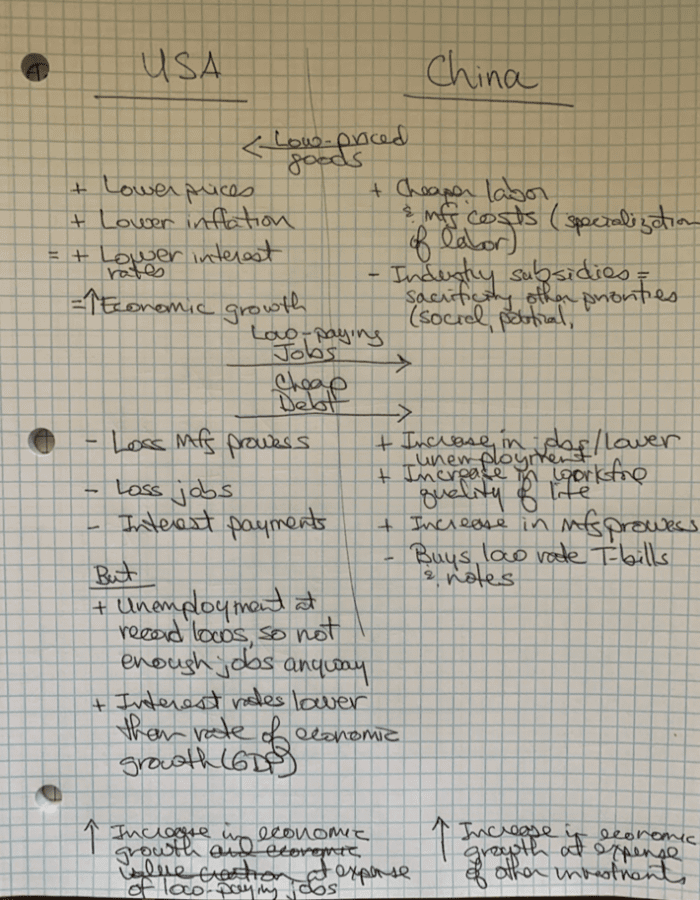 USA
China
Low-priced
goods
+ Lower prices
+ Lower inflation
= + Lower interest
rates
=↑Economic growth
+ Cheaper labor
& mfg costs (specialization
of labor)
- Industry subsidies =
sacrificing other priorities
(social, political,
Low-paying
Jobs
Cheap
Debt
- Loss Mfg prowess
- Loss jobs
- Interest payments
But
+ Unemployment at
record lows, so not
enough jobs anyway
+ Interest rates lower
than rate of economic
growth (GDP)
+ Increase in jobs/lower
unemployment
+ Increase in workforce
quality of life
+ Increase in mfg prowess
- Buys low rate T-bills
& notes
↑ Increase in economic
growth and economic
value creation at expense
of low-paying jobs
↑ Increase in economic
growth at expense
of other investments